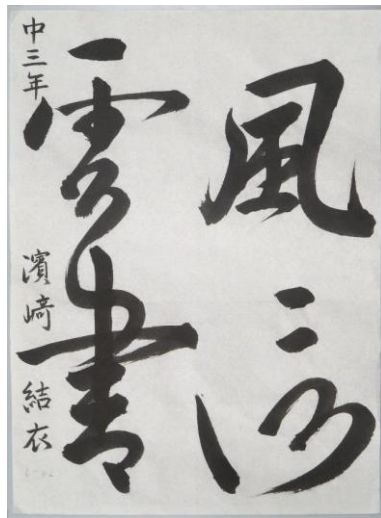 風信
雲書
中三年 濱﨑 結衣